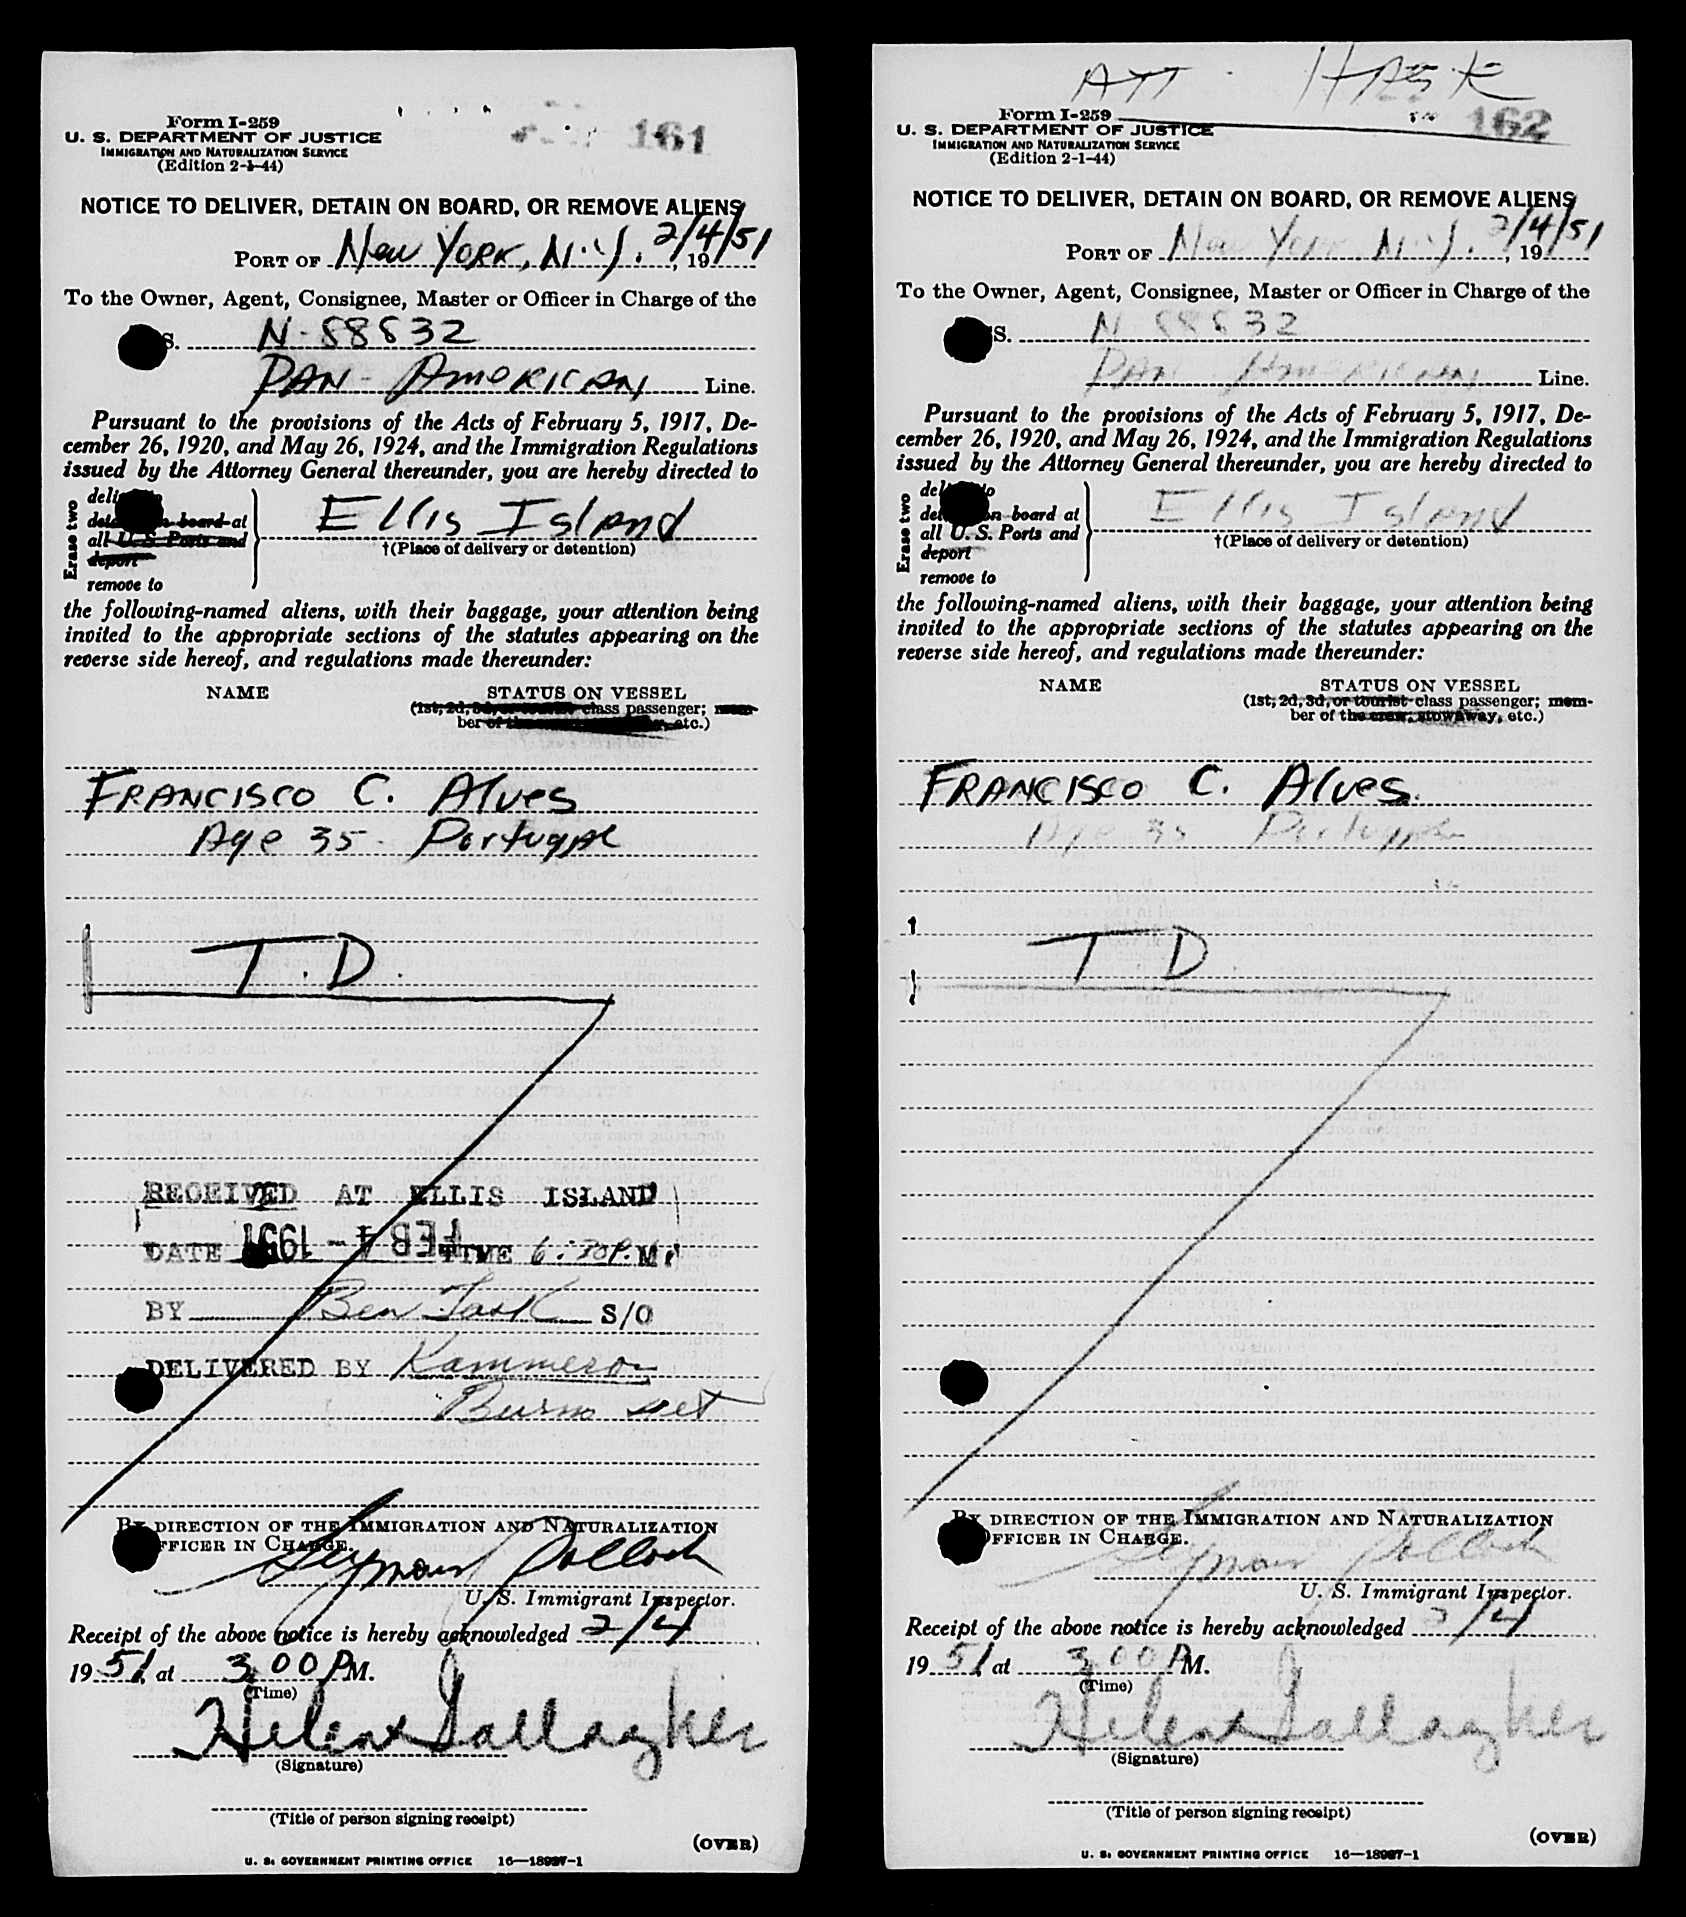 Form I-259
U. S. DEPARTMENT OF JUSTICE
IMMIGRATION AND NATURALIZATION SERVICE
(Edition 2-1-44)
161
NOTICE TO DELIVER, DETAIN ON BOARD, OR REMOVE ALIENS
PORT OF New York, N.Y. 2/4/51, 19
To the Owner, Agent, Consignee, Master or Officer in Charge of the
S. N-88832
PAN-AMERICAN Line.
Pursuant to the provisions of the Acts of February 5, 1917, De-
cember 26, 1920, and May 26, 1924, and the Immigration Regulations
issued by the Attorney General thereunder, you are hereby directed to
Erase two
board at
all U. S. Ports and
deport
remove to
Ellis Island
†(Place of delivery or detention)
the following-named aliens, with their baggage, your attention being
invited to the appropriate sections of the statutes appearing on the
reverse side hereof, and regulations made thereunder:
NAME STATUS ON VESSEL
(1st, 2d, 3d, or tourist class passenger; mem-
ber of the etc.)
FRANCISCO C. Alves
Age 35 - Portugal
T.D.
RECEIVED AT ELLIS ISLAND
DATE FEB 4 - 1951 TIME 6:30P.M.
BY Ben Task S/O
DELIVERED BY Kammerer
Burns Det
BY DIRECTION OF THE IMMIGRATION AND NATURALIZATION
OFFICER IN CHARGE.
Seymour Pollock
U. S. Immigrant Inspector.
Receipt of the above notice is hereby acknowledged 2/4
1951, at 3:00 PM.
(Time)
Helen Gallagher
(Signature)
(Title of person signing receipt)
(OVER)
U. S. GOVERNMENT PRINTING OFFICE 16—18987-1
ATT. HASK
Form I-259
U. S. DEPARTMENT OF JUSTICE
IMMIGRATION AND NATURALIZATION SERVICE
(Edition 2-1-44)
162
NOTICE TO DELIVER, DETAIN ON BOARD, OR REMOVE ALIENS
PORT OF New York N.Y. 2/4/51, 19
To the Owner, Agent, Consignee, Master or Officer in Charge of the
SS. N 88832
PAN AMERICAN Line.
Pursuant to the provisions of the Acts of February 5, 1917, De-
cember 26, 1920, and May 26, 1924, and the Immigration Regulations
issued by the Attorney General thereunder, you are hereby directed to
Erase two
on board at
all U. S. Ports and
deport
remove to
Ellis Island
†(Place of delivery or detention)
the following-named aliens, with their baggage, your attention being
invited to the appropriate sections of the statutes appearing on the
reverse side hereof, and regulations made thereunder:
NAME STATUS ON VESSEL
(1st, 2d, 3d, or tourist class passenger; mem-
ber of the crew, stowaway, etc.)
FRANCISCO C. Alves.
Age 35 Portugal
T D
BY DIRECTION OF THE IMMIGRATION AND NATURALIZATION
OFFICER IN CHARGE.
Seymour Pollock
U. S. Immigrant Inspector.
Receipt of the above notice is hereby acknowledged 2/4
1951 at 3:00 PM.
(Time)
Helen Gallagher
(Signature)
(Title of person signing receipt)
(OVER)
U. S. GOVERNMENT PRINTING OFFICE 16—18987-1